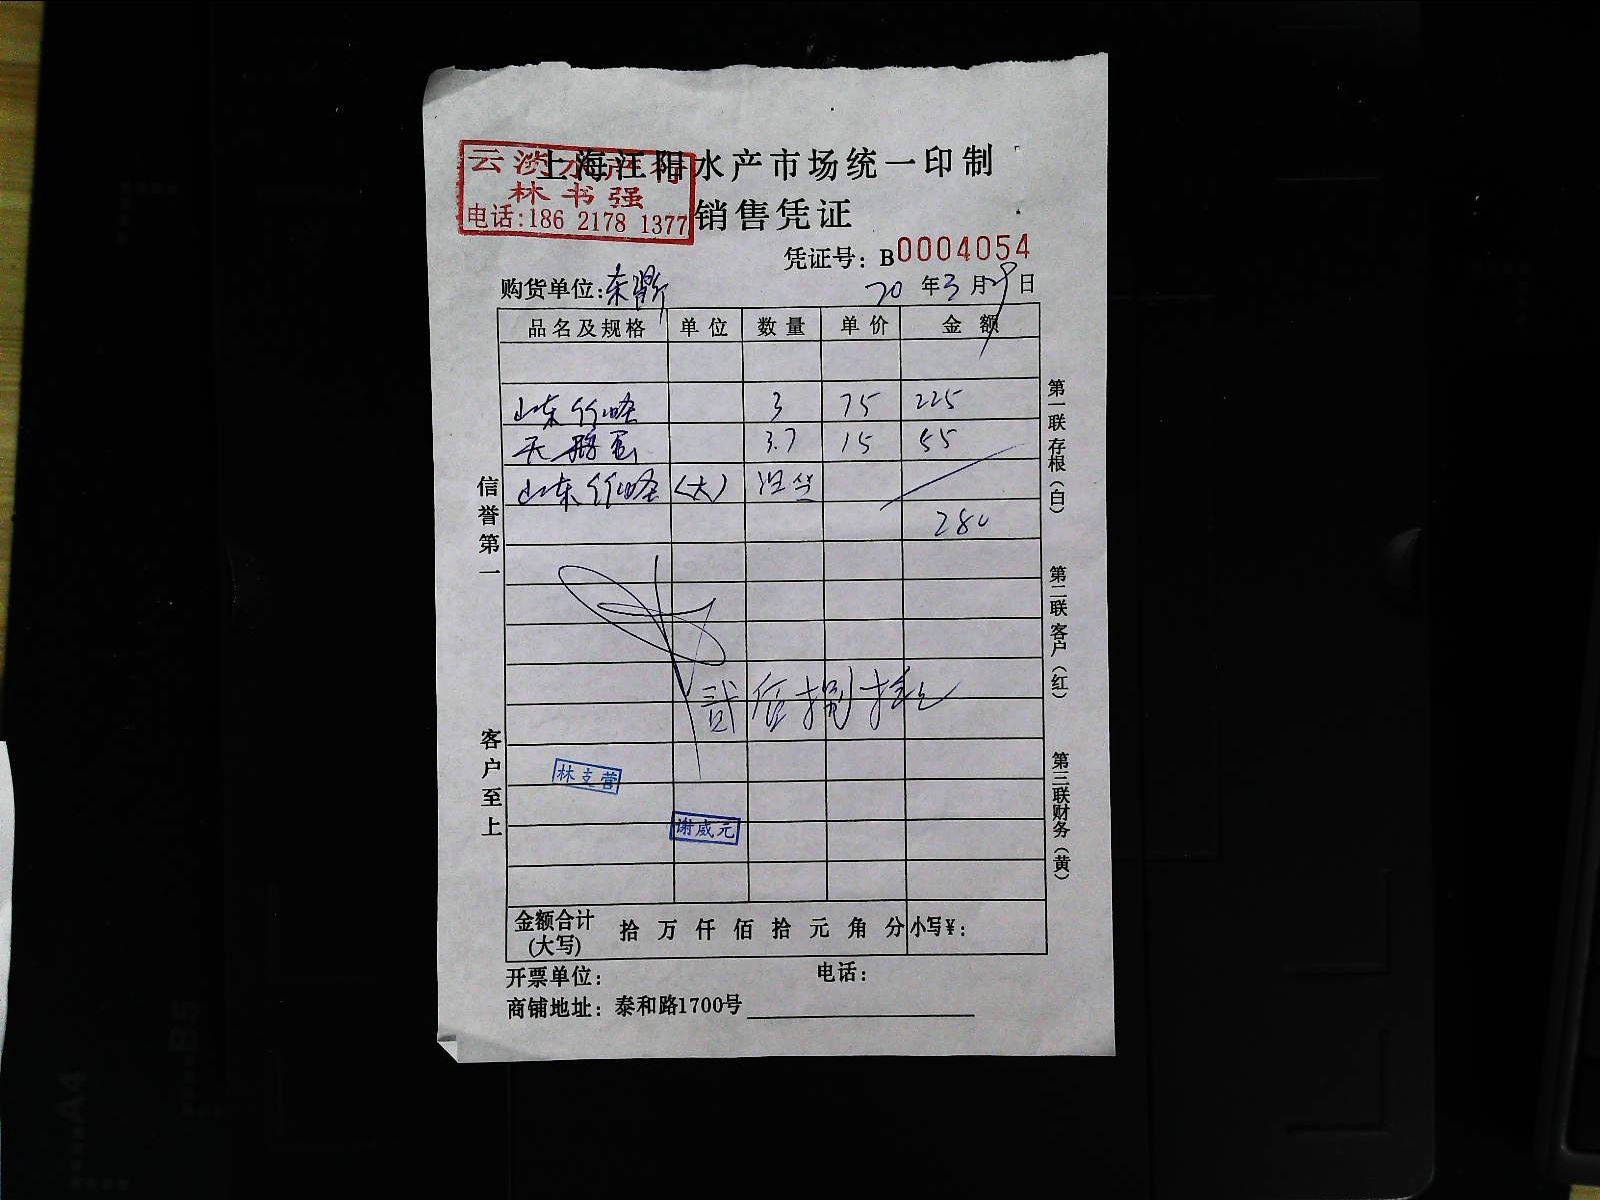 上海江阳水产市场统一印制
云淡水产行
林书强
电话:186 2178 1377
销售凭证
凭证号: B0004054
购货单位:
20 年 3 月 29 日
品名及规格 单位 数量 单价 金额
山东竹蛏 3 75 225
天鹅蛋 3.7 15 55
山东竹蛏 (大)
280
贰佰捌拾元
林支营
谢威元
金额合计(大写) 拾 万 仟 佰 拾 元 角 分 小写¥:
开票单位: 电话:
商铺地址: 泰和路1700号
信誉第一
客户至上
第一联存根(白)
第二联客户(红)
第三联财务(黄)